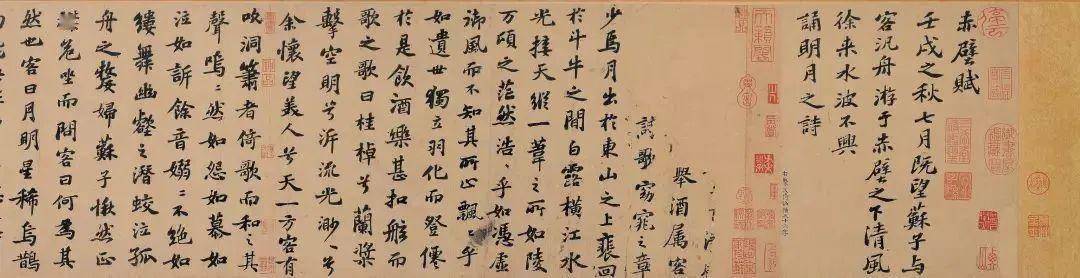 赤壁賦
壬戌之秋七月既望蘇子与
客汎舟游于赤壁之下清風
徐来水波不興
誦明月之詩
舉酒属客
詩歌窈窕之章
少焉月出於東山之上裴回
於斗牛之間白露橫江水
光接天縱一葦之所如陵
万頃之茫然浩〻乎如馮虛
御風而不知其所止飄〻乎
如遺世獨立羽化而登僊
於是飲酒樂甚扣舷而
歌之歌曰桂棹兮蘭槳
擊空明兮泝流光渺〻兮
余懷望美人兮天一方客有
吹洞簫者倚歌而和之其
聲嗚〻然如怨如慕如
泣如訴餘音嫋〻不絕如
縷舞幽壑之潛蛟泣孤
舟之嫠婦蘇子愀然正
襟危坐而問客曰何為其
然也客曰月明星稀烏鵲